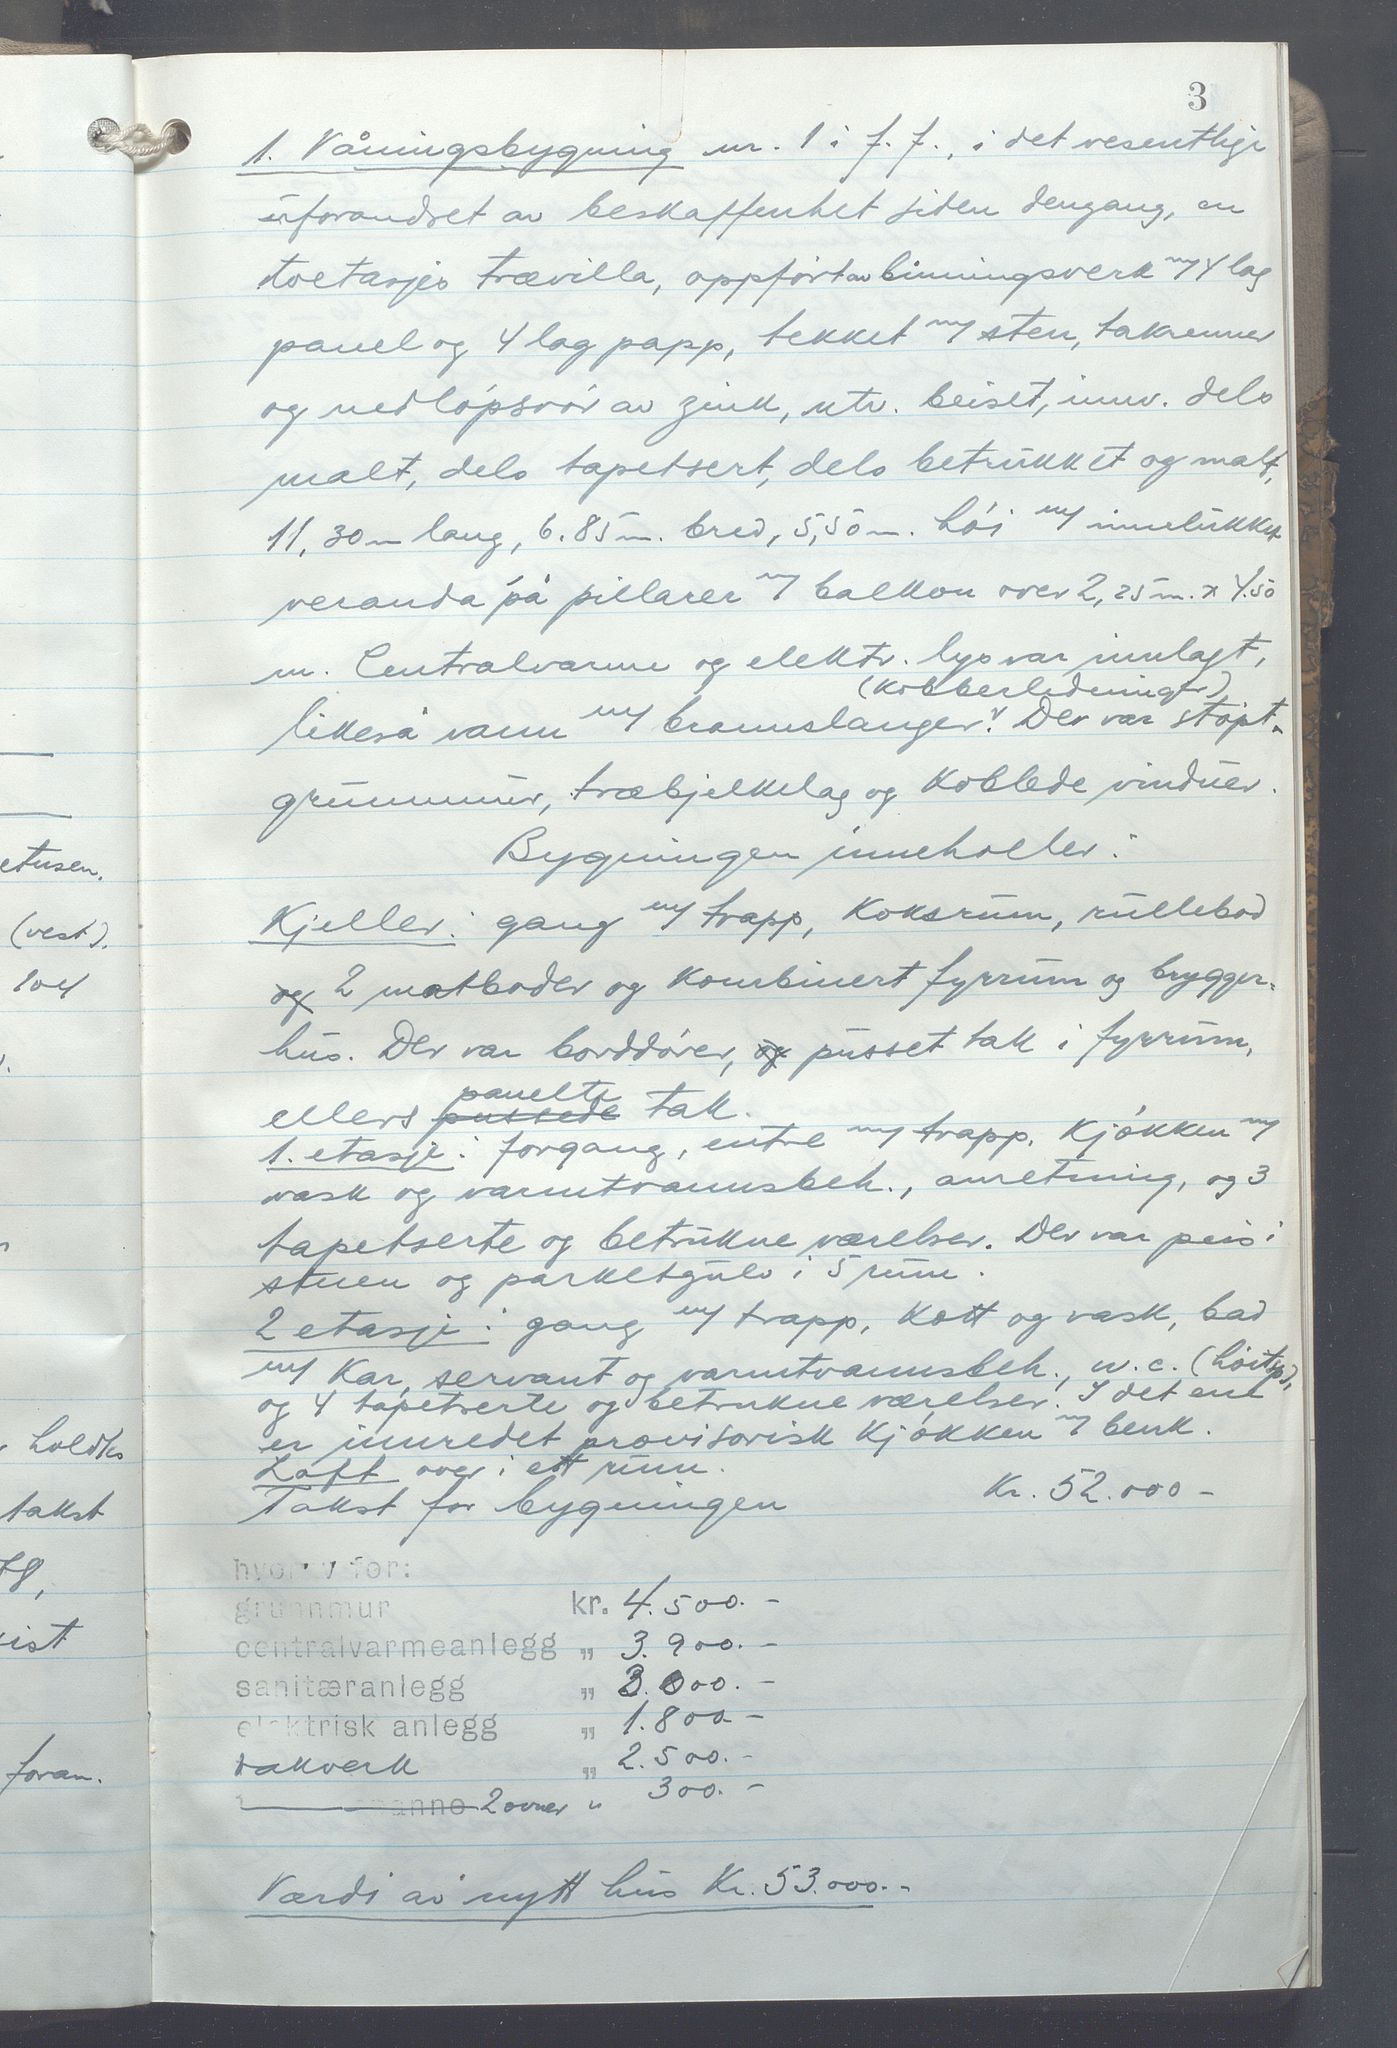 3
1. Våningsbygning nr. 1 i f. f., i det vesentlige
uforandret av beskaffenhet siden dengang, en
toetasjes trævilla, oppført av binningsverk m/ 4 lag
panel og 4 lag papp, tekket m/ sten, takrenner
og nedløpsrør av zink, utv. beiset, innv. dels
malt, dels tapetsert, dels betrukket og malt,
11,30 m lang, 6.85 m. bred, 5,50 m. høi m/ innelukket
veranda på pillarer m/ balkon over 2,25 m. x 4.50
m. Centralvarme og elektr. lys var innlagt,
(kobberledninger)
likeså vann m/ brannslanger. Der var støpt-
grunnmur, træbjelkelag og koblede vinduer.
Bygningen inneholder:
Kjeller: gang m/ trapp, koksrum, rullebod
og 2 matboder og kombinert fyrrum og brygger-
hus. Der var borddører, og pusset tak i fyrrum,
panelte
ellers pussede tak.
1. etasje: forgang, entre m/ trapp. Kjøkken m/
vask og varmtvannsbeh., anretning, og 3
tapetserte og betrukne værelser. Der var peis i
stuen og parketgulv i 5 rum.
2 etasje: gang m/ trapp, kott og vask, bad
m/ kar, servant og varmtvannsbeh., w.c. (høitsp),
og 4 tapetserte og betrukne værelser. I det ene
er innredet provisorisk kjøkken m/ benk.
Loft over i ett rum.
Takst for bygningen Kr. 52.000 -
hvorav for:
grunnmur kr. 4.500. -
centralvarmeanlegg „ 3.900. -
sanitæranlegg „ 3.000. -
elektrisk anlegg „ 1.800 -
takverk „ 2.500. -
2 ovner „ 300. -
Værdi av nytt hus Kr. 53.000. -
etusen.
(vest).
104
holdtes
takst
78,
ist
foran.